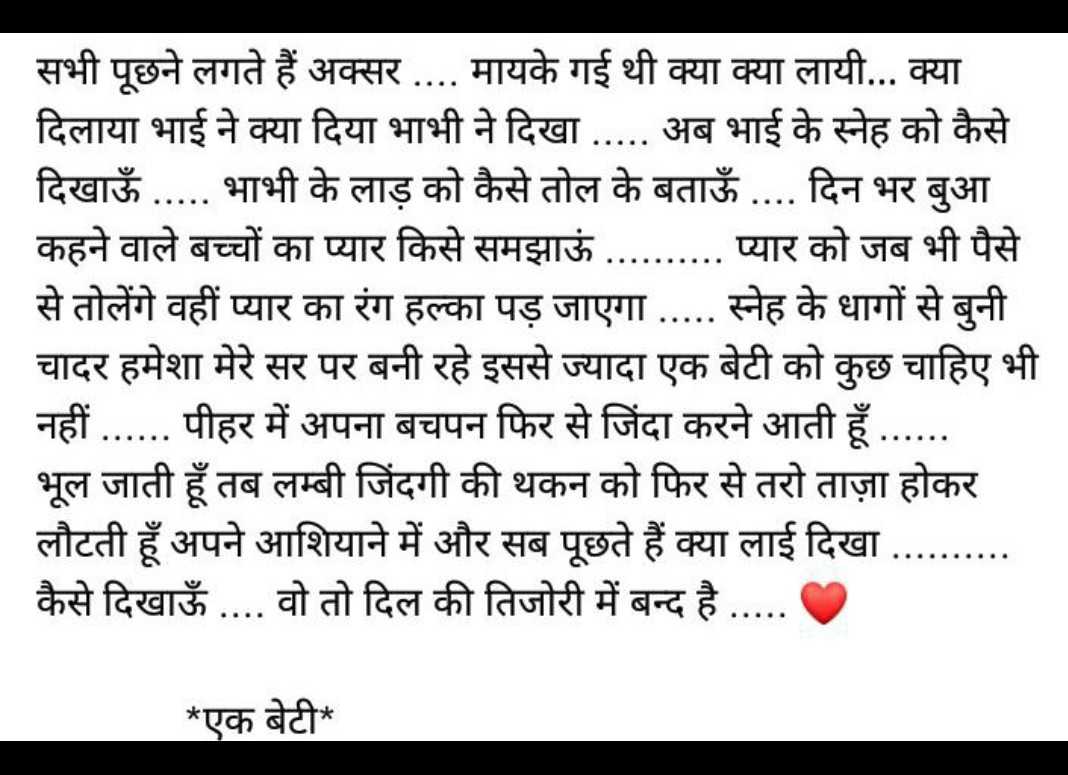 सभी पूछने लगते हैं अक्सर .... मायके गई थी क्या क्या लायी... क्या
दिलाया भाई ने क्या दिया भाभी ने दिखा ..... अब भाई के स्नेह को कैसे
दिखाऊँ ..... भाभी के लाड़ को कैसे तोल के बताऊँ .... दिन भर बुआ
कहने वाले बच्चों का प्यार किसे समझाऊं .......... प्यार को जब भी पैसे
से तोलेंगे वहीं प्यार का रंग हल्का पड़ जाएगा ..... स्नेह के धागों से बुनी
चादर हमेशा मेरे सर पर बनी रहे इससे ज्यादा एक बेटी को कुछ चाहिए भी
नहीं ...... पीहर में अपना बचपन फिर से जिंदा करने आती हूँ ......
भूल जाती हूँ तब लम्बी जिंदगी की थकन को फिर से तरो ताज़ा होकर
लौटती हूँ अपने आशियाने में और सब पूछते हैं क्या लाई दिखा ..........
कैसे दिखाऊँ .... वो तो दिल की तिजोरी में बन्द है ..... ❤️
*एक बेटी*